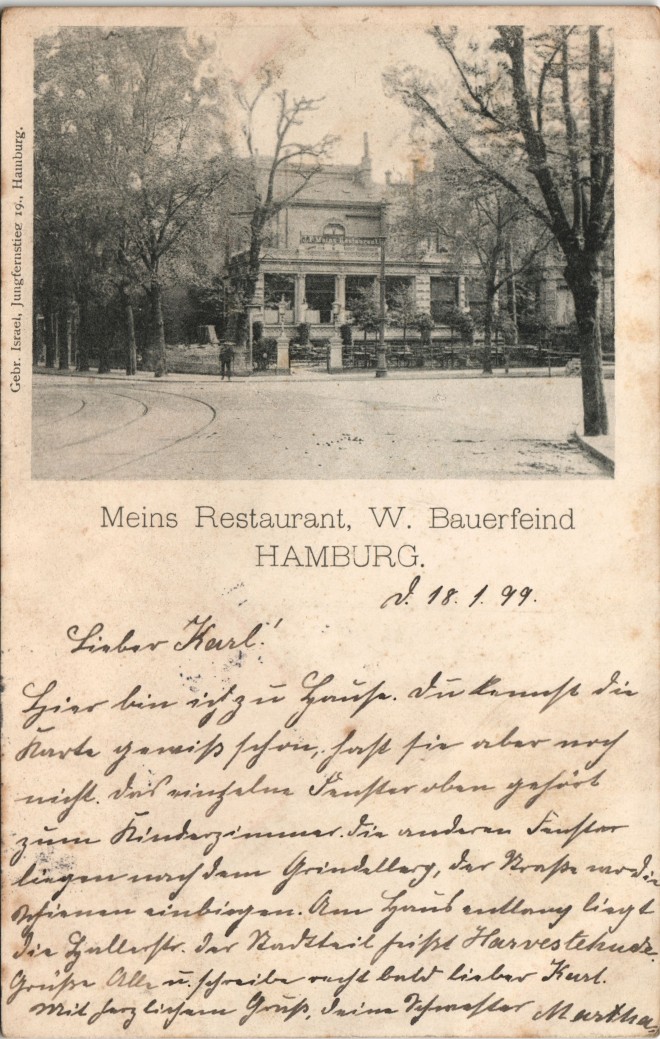 Gebr. Israel, Jungfernstieg 19., Hamburg.
Meins Restaurant, W. Bauerfeind
HAMBURG.
d. 18. 1. 99.
Lieber Karl!
Hier bin ich zu Hause. Du kennst die
Karte gewiß schon, hast sie aber noch
nicht. Das einzelne Fenster oben gehört
zum Kinderzimmer. die anderen Fenster
liegen nach dem Grindelberg, der Straße wo die
Schienen einbiegen. Am Haus entlang liegt
die Hallerstr. der Stadtteil heißt Harvestehude.
Grüße Alle u. schreibe recht bald lieber Karl.
Mit herzlichem Gruß, deine Schwester Martha.